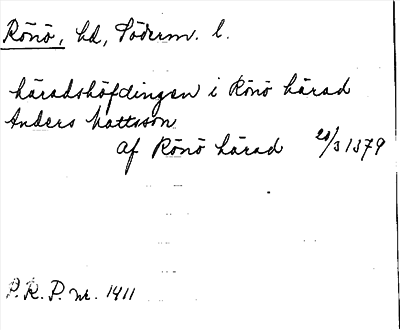 Rönö, hd, Söderm. l.
häradshöfdingen i Rönö härad
Anders Mattsson
af Rönö härad 20/3 1379
P.R.P. nr. 1411